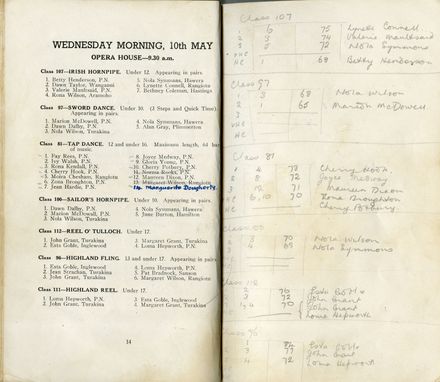 WEDNESDAY MORNING, 10th MAY
OPERA HOUSE—9.30 a.m.
Class 107—IRISH HORNPIPE. Under 12. Appearing in pairs.
1. Betty Henderson, P.N.
2. Dawn Taylor, Wanganui
3. Valerie Maultsaid, P.N.
4. Rona Wilson, Aramoho
5. Nola Symmans, Hawera
6. Lynette Connell, Rangiotu
7. Bethney Coleman, Hastings
Class 97—SWORD DANCE. Under 10. (3 Steps and Quick Time).
Appearing in pairs.
1. Marion McDowell, P.N.
2. Dawn Dalby, P.N.
3. Nola Wilson, Turakina
4. Nola Symmans, Hawera
5. Alan Gray, Plimmerton
Class 81—TAP DANCE. 12 and under 16. Maximum length, 64 bars
of music.
1. Fay Rees, P.N.
2. Ivy Walsh, P.N.
3. Rona Kendall, P.N.
4. Cherry Hook, P.N.
5. Moira Chesham, Rangiotu
6. Zona Broughton, P.N.
7. Jean Hardie, P.N.
8. Joyce Medway, P.N.
9. Gloria Young, P.N.
10. Cherry Picbury, P.N.
12. Maureen Dixon, P.N.
13. Margaret Wilson, Rangiotu
14. Marguerite Dougherty
Class 100—SAILOR'S HORNPIPE. Under 10. Appearing in pairs.
1. Dawn Dalby, P.N.
2. Marion McDowell, P.N.
3. Nola Wilson, Turakina
4. Nola Symmans, Hawera
5. June Burton, Hamilton
Class 112—REEL O' TULLOCH. Under 17.
1. John Grant, Turakina
2. Esta Goble, Inglewood
3. Margaret Grant, Turakina
4. Loma Hepworth, P.N.
Class 96—HIGHLAND FLING. 13 and under 17. Appearing in pairs.
1. Esta Goble, Inglewood
2. Jean Strachan, Turakina
3. John Grant, Turakina
4. Loma Hepworth, P.N.
5. Pat Bradnock, Sanson
6. Margaret Wilson, Rangiotu
Class 111—HIGHLAND REEL. Under 17.
1. Loma Hepworth, P.N.
2. John Grant, Turakina
3. Esta Goble, Inglewood
4. Margaret Grant, Turakina
14
Class 107
1 6 75 Lynette Connell
2 3 74 Valerie Maultsaid
3 5 72 Nola Symmons
VHC
HC 1 68 Betty Henderson
Class 97
1 3 68 Nola Wilson
2 1 65 Marion McDowell
3
HC
Class 81
1 4 78 Cherry Hook
2 8 72 Joyce Medway
3 12 71 Maureen Dixon
HC 6, 10 70 Zona Broughton
3 70 Nola Wilson
4 69 Nola Symmons
Class 112
76 Esta Goble
72 John Grant
70 John Grant
Loma Hepworth
Class 96
1 84 Esta Goble
3 77 John Grant
4 72 Loma Hepworth